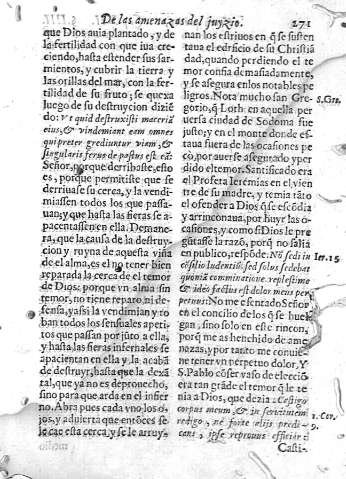 De las amenazas del juyzio.
271
que Dios auia plantado, y de
la fertilidad con que iua cre-
ciendo, hasta estender sus sar-
mientos, y cubrir la tierra y
las orillas del mar, con la fer-
tilidad de su fruto; se quexa
luego de su destruycion dizié-
do: Vt quid destruxisti maceriā
eius, & vindemiant eam omnes
qui preter grediuntur viam, &
singularis ferus de pastus est eā?
Señor, porque derribaste, esto
es, porque permitiste que se
derriuase su cerca, y la vendi-
miassen todos los que passa-
uan; y que hasta las fieras se a-
pacentassen en ella. De mane-
ra, que la causa de la destruy-
cion y ruyna de aquesta viña
de el alma, es el no tener bien
reparada la cerca de el temor
de Dios: porque vn alma sin
temor, no tiene reparo, ni de-
fensa, y assi la vendimian y ro-
ban todos los sensuales apeti-
tos que passan por junto a ella,
y hasta las fieras infernales se
apacientan en ella y la acabā
de destruyr, hasta que la dexā
tal, que ya no es de prouecho,
sino para que arda en el infier
no. Abra pues cada vno los o-
jos, y aduierta que entōces se
le cae esta cerca, y se le arruy-
nan los estriuos en q̄ se susten
taua el edificio de su Christiā
dad, quando perdiendo el te
mor confia demasiadamente,
y se asegura en los notables pe
ligros. Nota mucho san Gre-
gorio, q̄ Loth en aquella per
uersa ciudad de Sodoma fue
justo; y en el monte donde es-
taua fuera de las ocasiones pe
cò, por auerse asegurado y per
dido el temor. Santificado era
el Profeta Ieremias en el vien
tre de su madre, y temia tāto
el ofender a Dios q̄ se escōdia
y arrinconaua, por huyr las o-
casiones, y como si Dios le pre
gūtasse la razō, porq̄ no salia
en publico, respōde. Nō sedi in
cōsilio ludentiū, sed solus sedebā
quoniā comminatione replestime
& ideo factus est dolor meus per
petuus: No me e sentado Señor
en el concilio de los q̄ se huel
gan, sino solo en este rincon,
porq̄ me as henchido de ame
nazas, y por tanto me conuie
ne tener vn perpetuo dolor. Y
S. Pablo cō ser vaso de elecciō
era tan grāde el temor q̄ le te
nia a Dios, que dezia: Castigo
corpus meum, & in seruitutem
redigo, ne forte alijs predi-
cans, ipse reprouus efficiar:
Casti-
S. Gre.
Ier. 15
1. Cor.
9.